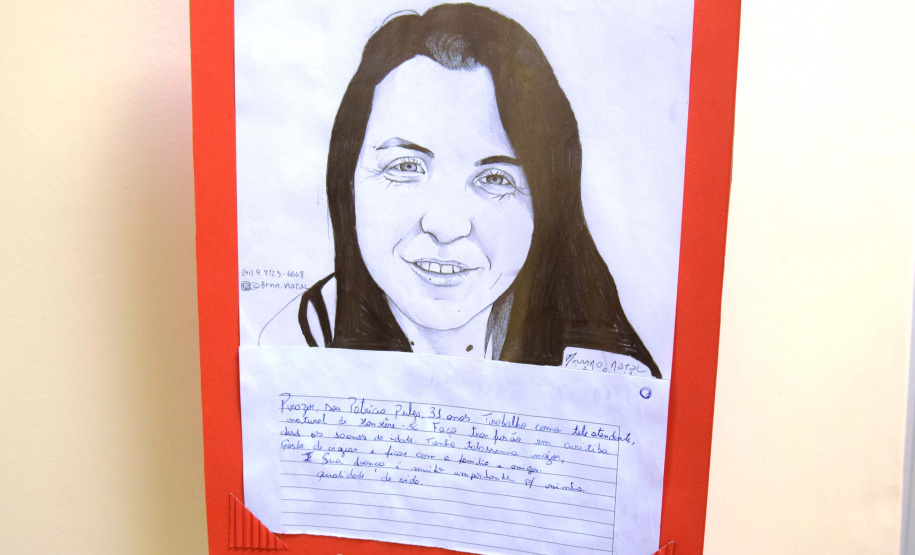 (41) 9 9123-6668
@Brnn.natal
Brunno.natal
Prazer, sou Patrícia Pulga, 31 anos. Trabalho como tele atendente,
natural de Xanxerê-SC Faço transfusão em Curitiba
desde os 10 anos de idade. Tenho talassemia major,
Gosto de viajar e ficar com a família e amigos
Sua doação é muito importante p/ minha
qualidade de vida.